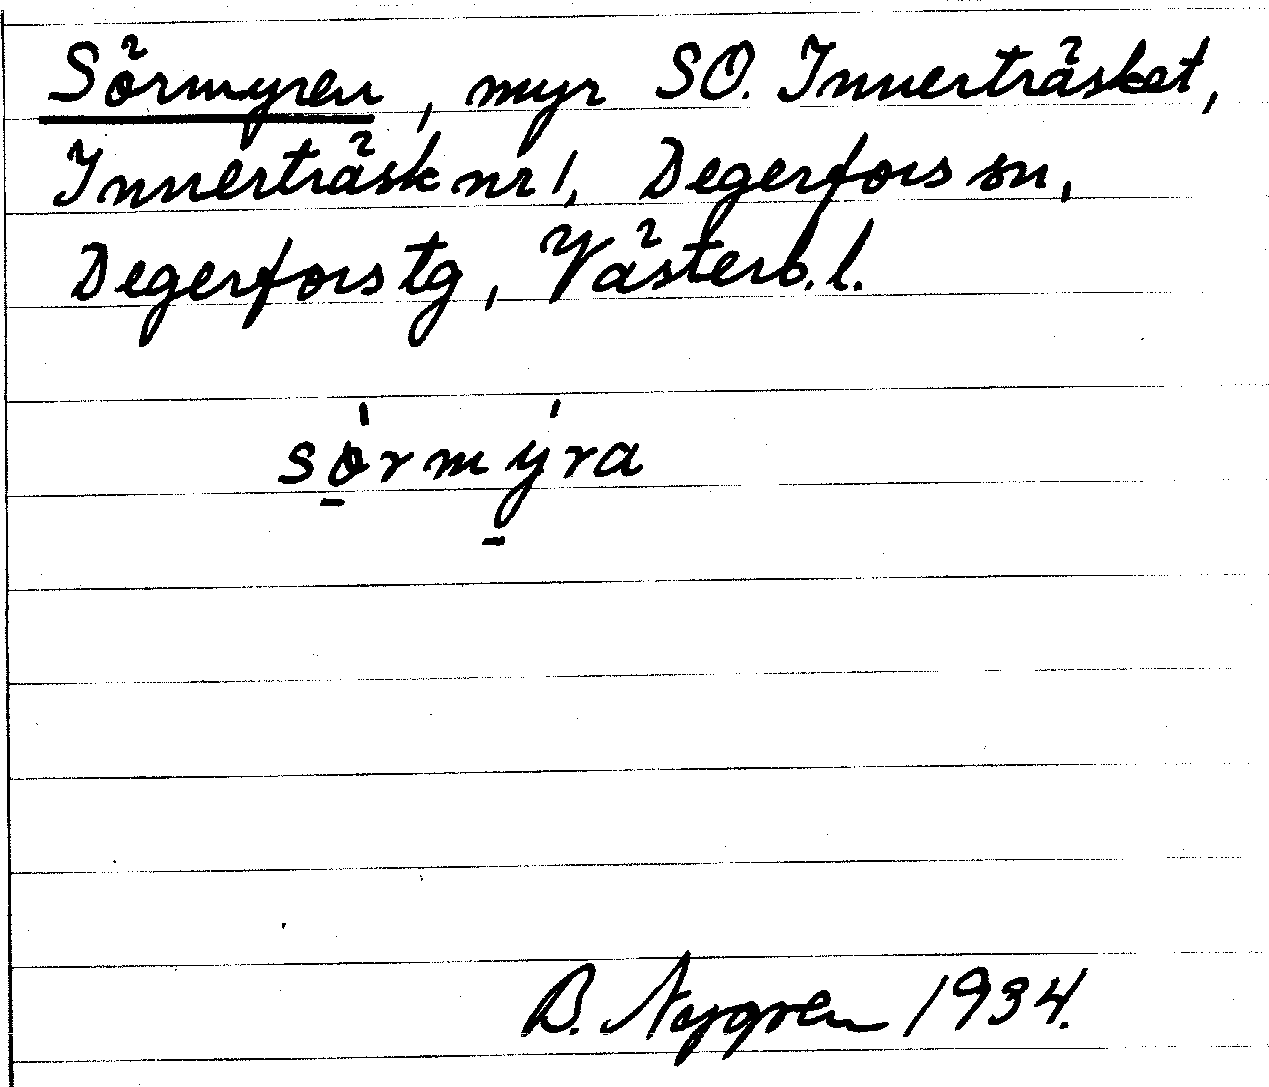 Sörmyren, myr SO. Innerträsket,
Innerträsk nr 1, Degerfors sn,
Degerfors tg, Västerb. l.
sǿ̠rmý̠ra
B. Nygren 1934.